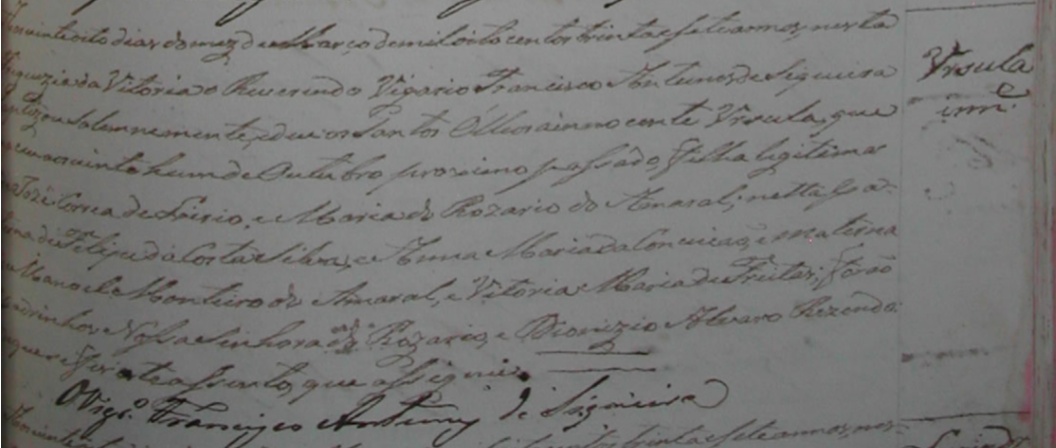 vinte oito dias do mez de Março de mil oito centos trinta e sete annos, nesta
Freguezia da Vitória o Reverendo Vigario Francisco Antunes de Siqueira
baptizou solemnemente, e deu os Santos Oleos a innocente Vrsula, que
nasceu aos vinte hum de Outubro proximo passado, filha legitima
José Correa de Lirio, e Maria do Rozario do Amaral; netta pa-
terna de Felipe da Costa e Silva, e Anna Maria da Conceicaõ, e materna
Manoel Monteiro do Amaral, e Vitoria Maria de Freitas; foraõ
Padrinhos Nossa Senhora do Rozario, e Dionizio Alvaro Rezendo:
e fiz este assento, que assignei.
O Vigr.º Francisco Antunes de Siqueira
Vrsula
inn.e